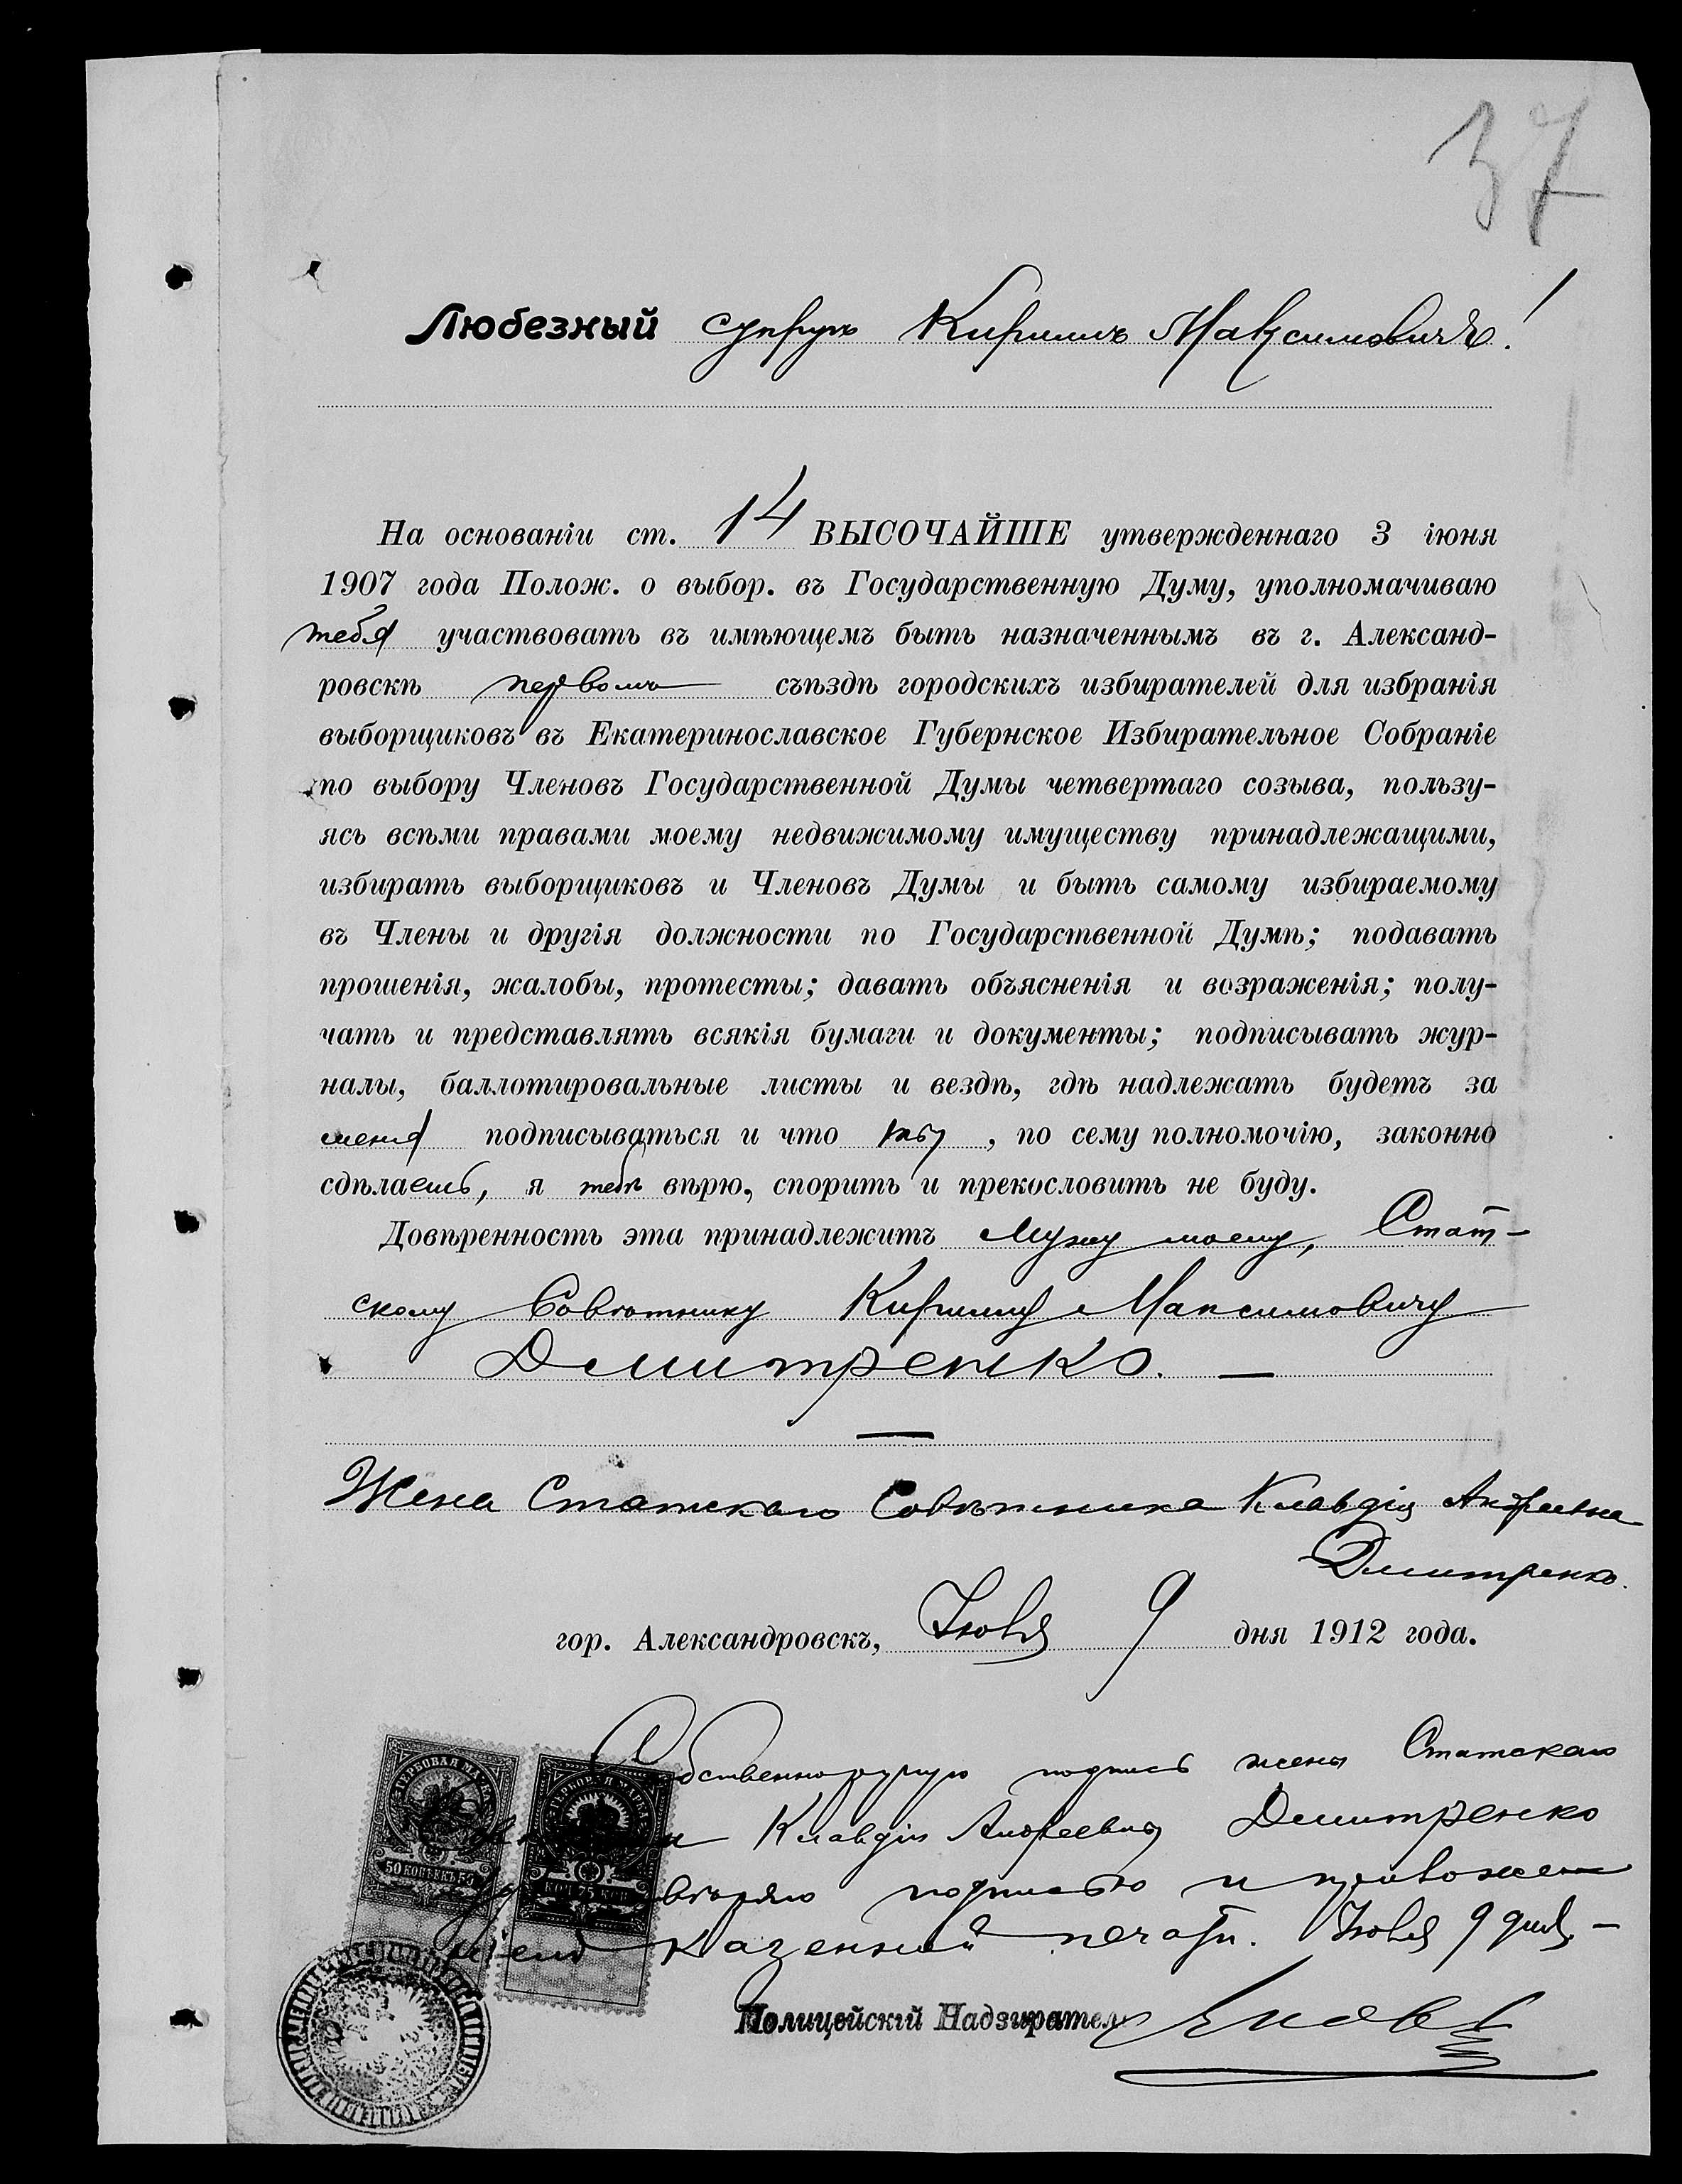 37
Любезный супругъ Кириллъ Максимовичъ!
На основаніи ст. 14 ВЫСОЧАЙШЕ утвержденнаго 3 іюня
1907 года Полож. о выбор. въ Государственную Думу, уполномачиваю
тебя участвовать въ имѣющемъ быть назначеннымъ въ г. Александ-
ровскѣ первомъ съѣздѣ городскихъ избирателей для избранія
выборщиковъ въ Екатеринославское Губернское Избирательное Собраніе
по выбору Членовъ Государственной Думы четвертаго созыва, пользу-
ясь всѣми правами моему недвижимому имуществу принадлежащими,
избирать выборщиковъ и Членовъ Думы и быть самому избираемому
въ Члены и другія должности по Государственной Думѣ; подавать
прошенія, жалобы, протесты; давать объясненія и возраженія; полу-
чать и представлять всякія бумаги и документы; подписывать жур-
налы, баллотировальные листы и вездѣ, гдѣ надлежать будетъ за
меня подписываться и что ты, по сему полномочію, законно
сдѣлаешь, я тебѣ вѣрю, спорить и прекословить не буду.
Довѣренность эта принадлежитъ Мужу моему, Стат-
скому Совѣтнику Кириллу Максимовичу
Дмитренко. —
Жена Статскаго Совѣтника Клавдія Андреевна
Дмитренко.
гор. Александровскъ, Іюля 9 дня 1912 года.
Собственноручную подпись жены Статскаго
Клавдіи Андреевны Дмитренко
подписью и приложе-
ніемъ казенной печати. Іюля 9 дня —
Полицейскій Надзиратель
ГЕРБОВАЯ МАРКА
50 КОПѢЕКЪ 50
ГЕРБОВАЯ МАРКА
КОП 75 КОП